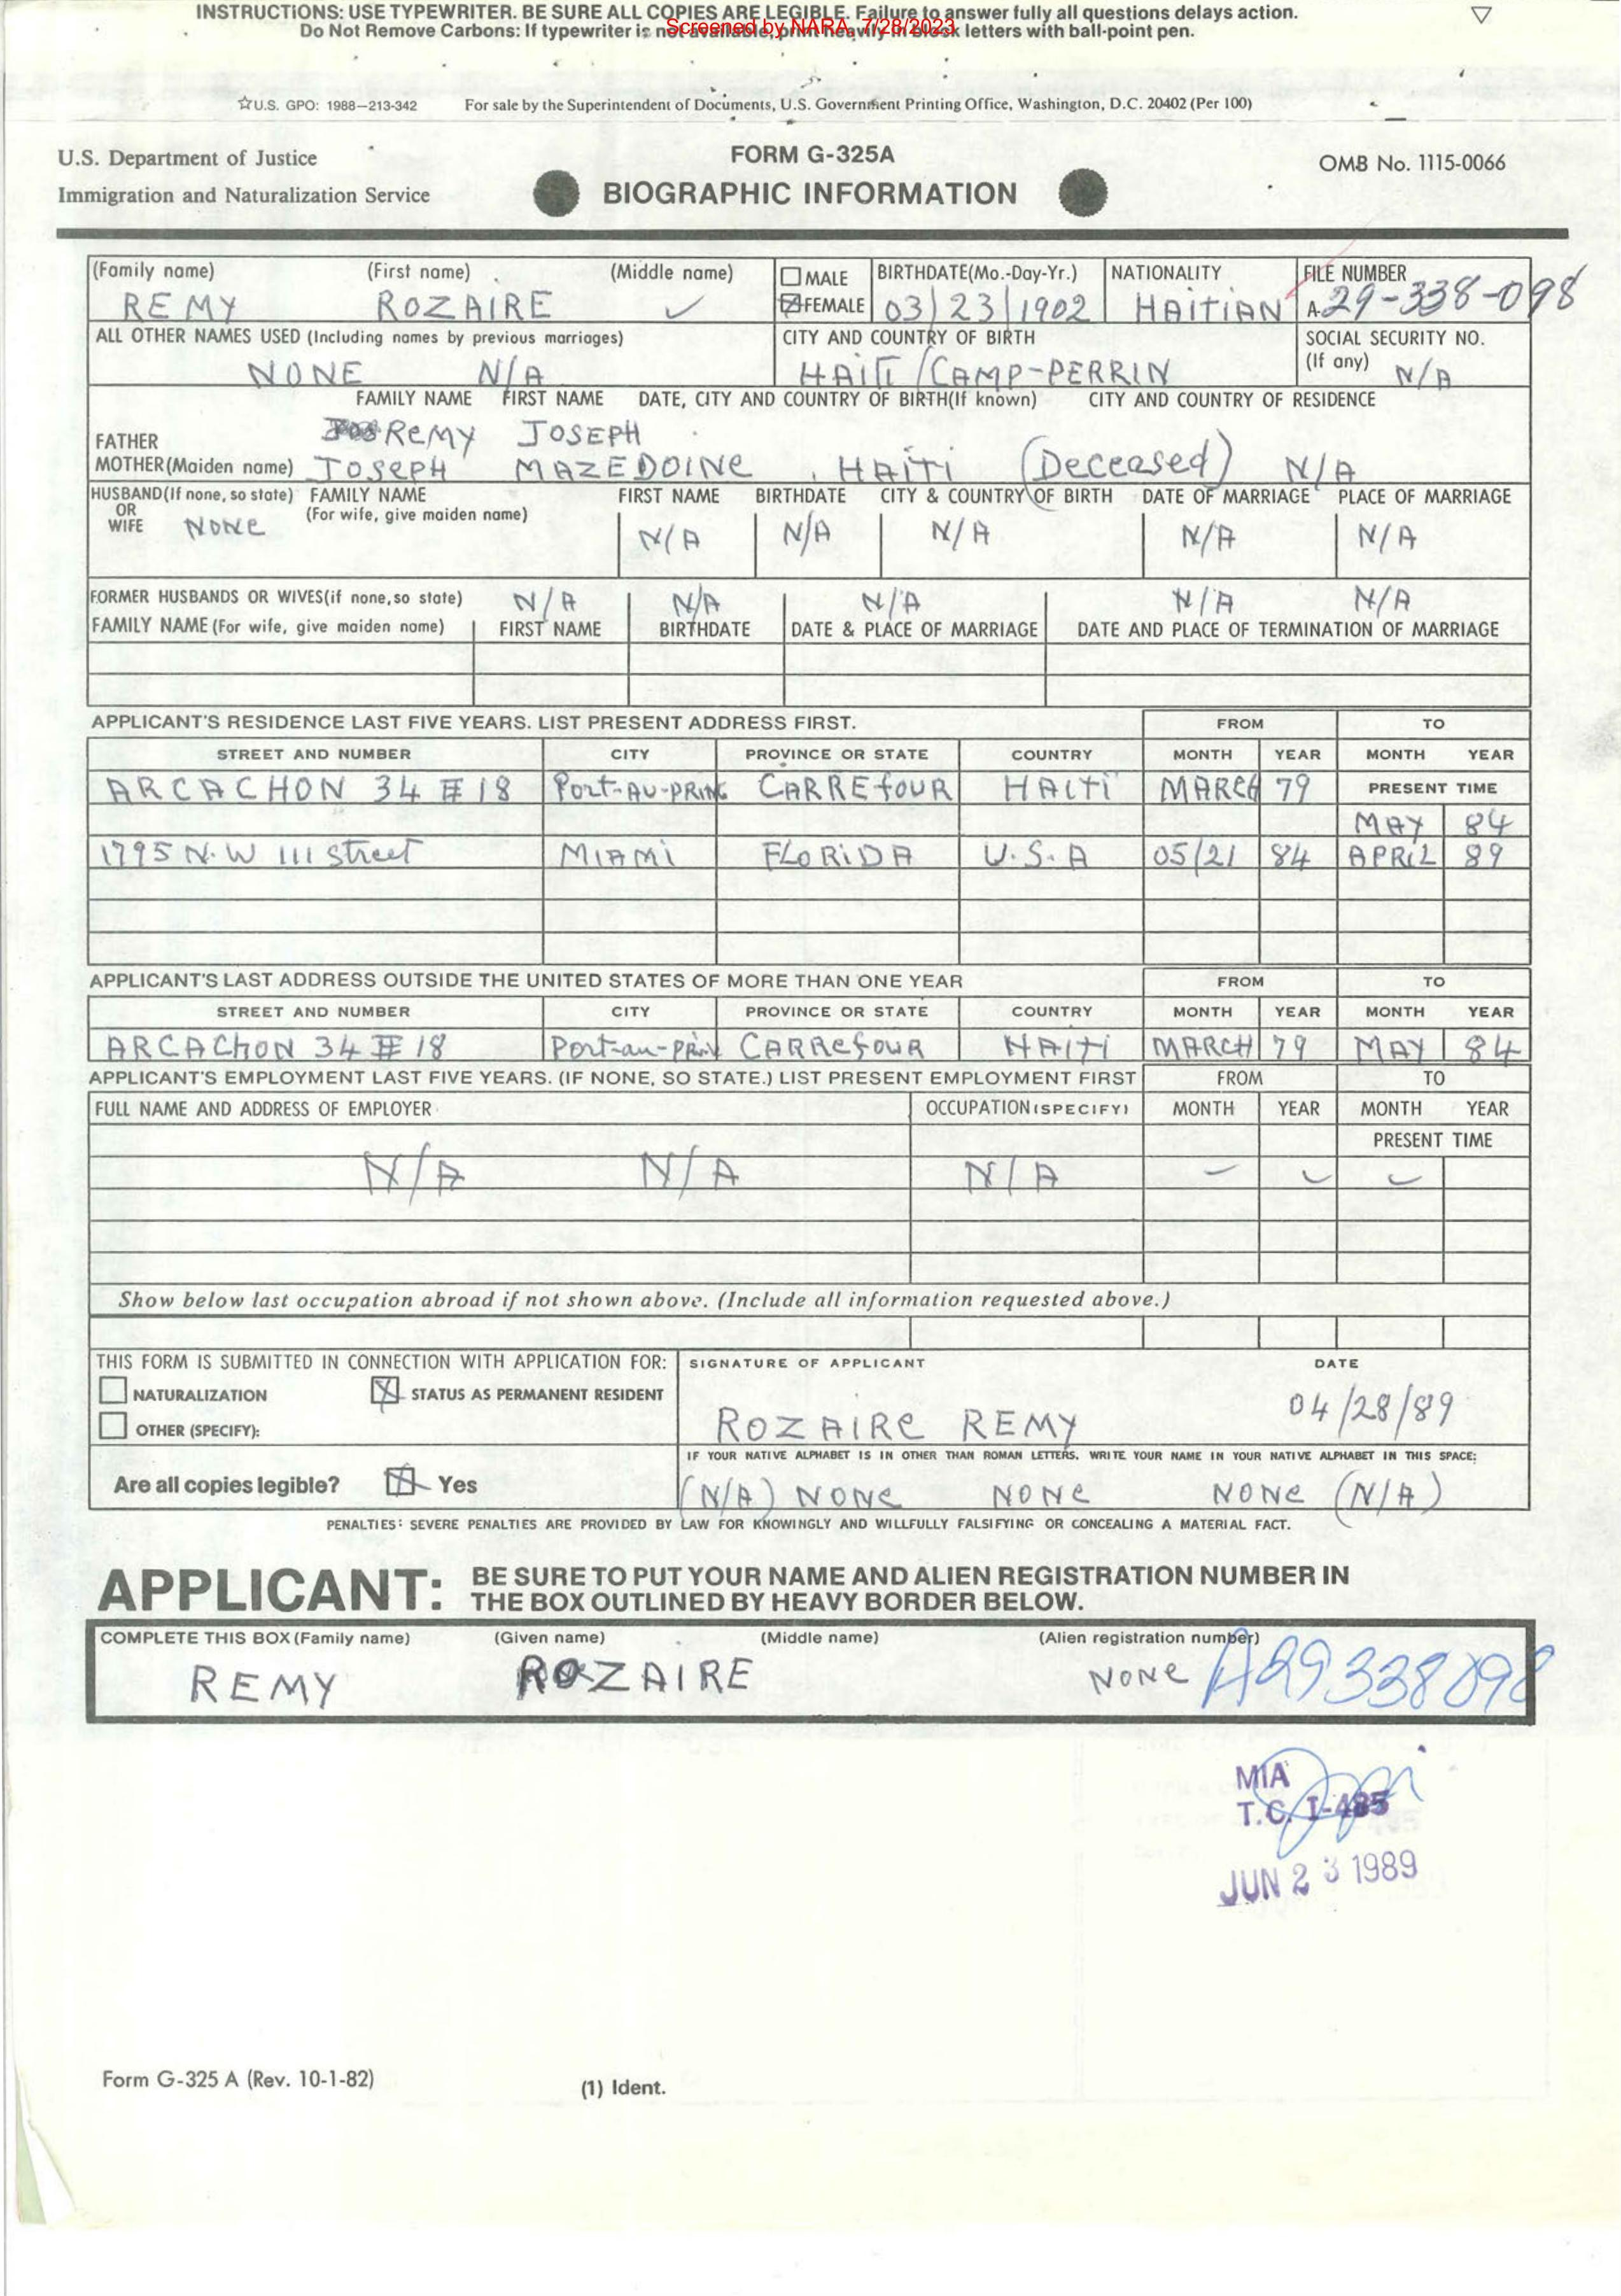 INSTRUCTIONS: USE TYPEWRITER. BE SURE ALL COPIES ARE LEGIBLE. Failure to answer fully all questions delays action.
Do Not Remove Carbons: If typewriter is not available, print heavily in block letters with ball-point pen.
Screened by NARA, 7/28/2023
☆U.S. GPO: 1988—213-342 For sale by the Superintendent of Documents, U.S. Government Printing Office, Washington, D.C. 20402 (Per 100)
U.S. Department of Justice FORM G-325A OMB No. 1115-0066
Immigration and Naturalization Service BIOGRAPHIC INFORMATION
(Family name) (First name) (Middle name) MALE BIRTHDATE(Mo.-Day-Yr.) NATIONALITY FILE NUMBER
REMY ROZAIRE FEMALE 03/23/1902 HAITIAN A-29-338-098
ALL OTHER NAMES USED (Including names by previous marriages) CITY AND COUNTRY OF BIRTH SOCIAL SECURITY NO.
(If any)
NONE N/A HAITI/CAMP-PERRIN N/A
FAMILY NAME FIRST NAME DATE, CITY AND COUNTRY OF BIRTH(If known) CITY AND COUNTRY OF RESIDENCE
FATHER REMY JOSEPH
MOTHER(Maiden name) JOSEPH MAZEDOINE, HAITI (Deceased) N/A
HUSBAND(If none, so state) FAMILY NAME FIRST NAME BIRTHDATE CITY & COUNTRY OF BIRTH DATE OF MARRIAGE PLACE OF MARRIAGE
OR (For wife, give maiden name)
WIFE NONE N/A N/A N/A N/A N/A
FORMER HUSBANDS OR WIVES(if none,so state) N/A N/A N/A N/A N/A
FAMILY NAME (For wife, give maiden name) FIRST NAME BIRTHDATE DATE & PLACE OF MARRIAGE DATE AND PLACE OF TERMINATION OF MARRIAGE
APPLICANT'S RESIDENCE LAST FIVE YEARS. LIST PRESENT ADDRESS FIRST. FROM TO
STREET AND NUMBER CITY PROVINCE OR STATE COUNTRY MONTH YEAR MONTH YEAR
ARCACHON 34 # 18 PORT-AU-PRINC CARREFOUR HAITI MARCH 79 PRESENT TIME
MAY 84
1795 N.W 111 Street MIAMI FLORIDA U.S.A 05/21 84 APRIL 89
APPLICANT'S LAST ADDRESS OUTSIDE THE UNITED STATES OF MORE THAN ONE YEAR FROM TO
STREET AND NUMBER CITY PROVINCE OR STATE COUNTRY MONTH YEAR MONTH YEAR
ARCACHON 34 # 18 Port-au-Prin CARREFOUR HAITI MARCH 79 MAY 84
APPLICANT'S EMPLOYMENT LAST FIVE YEARS. (IF NONE, SO STATE.) LIST PRESENT EMPLOYMENT FIRST FROM TO
FULL NAME AND ADDRESS OF EMPLOYER OCCUPATION (SPECIFY) MONTH YEAR MONTH YEAR
PRESENT TIME
N/A N/A N/A
Show below last occupation abroad if not shown above. (Include all information requested above.)
THIS FORM IS SUBMITTED IN CONNECTION WITH APPLICATION FOR: SIGNATURE OF APPLICANT DATE
NATURALIZATION X STATUS AS PERMANENT RESIDENT 04/28/89
OTHER (SPECIFY): ROZAIRE REMY
IF YOUR NATIVE ALPHABET IS IN OTHER THAN ROMAN LETTERS, WRITE YOUR NAME IN YOUR NATIVE ALPHABET IN THIS SPACE:
Are all copies legible? X Yes (N/A) NONE NONE NONE (N/A)
PENALTIES: SEVERE PENALTIES ARE PROVIDED BY LAW FOR KNOWINGLY AND WILLFULLY FALSIFYING OR CONCEALING A MATERIAL FACT.
APPLICANT: BE SURE TO PUT YOUR NAME AND ALIEN REGISTRATION NUMBER IN
THE BOX OUTLINED BY HEAVY BORDER BELOW.
COMPLETE THIS BOX (Family name) (Given name) (Middle name) (Alien registration number)
REMY ROZAIRE NONE A29338098
MIA
T.C. I-485
JUN 23 1989
Form G-325 A (Rev. 10-1-82) (1) Ident.